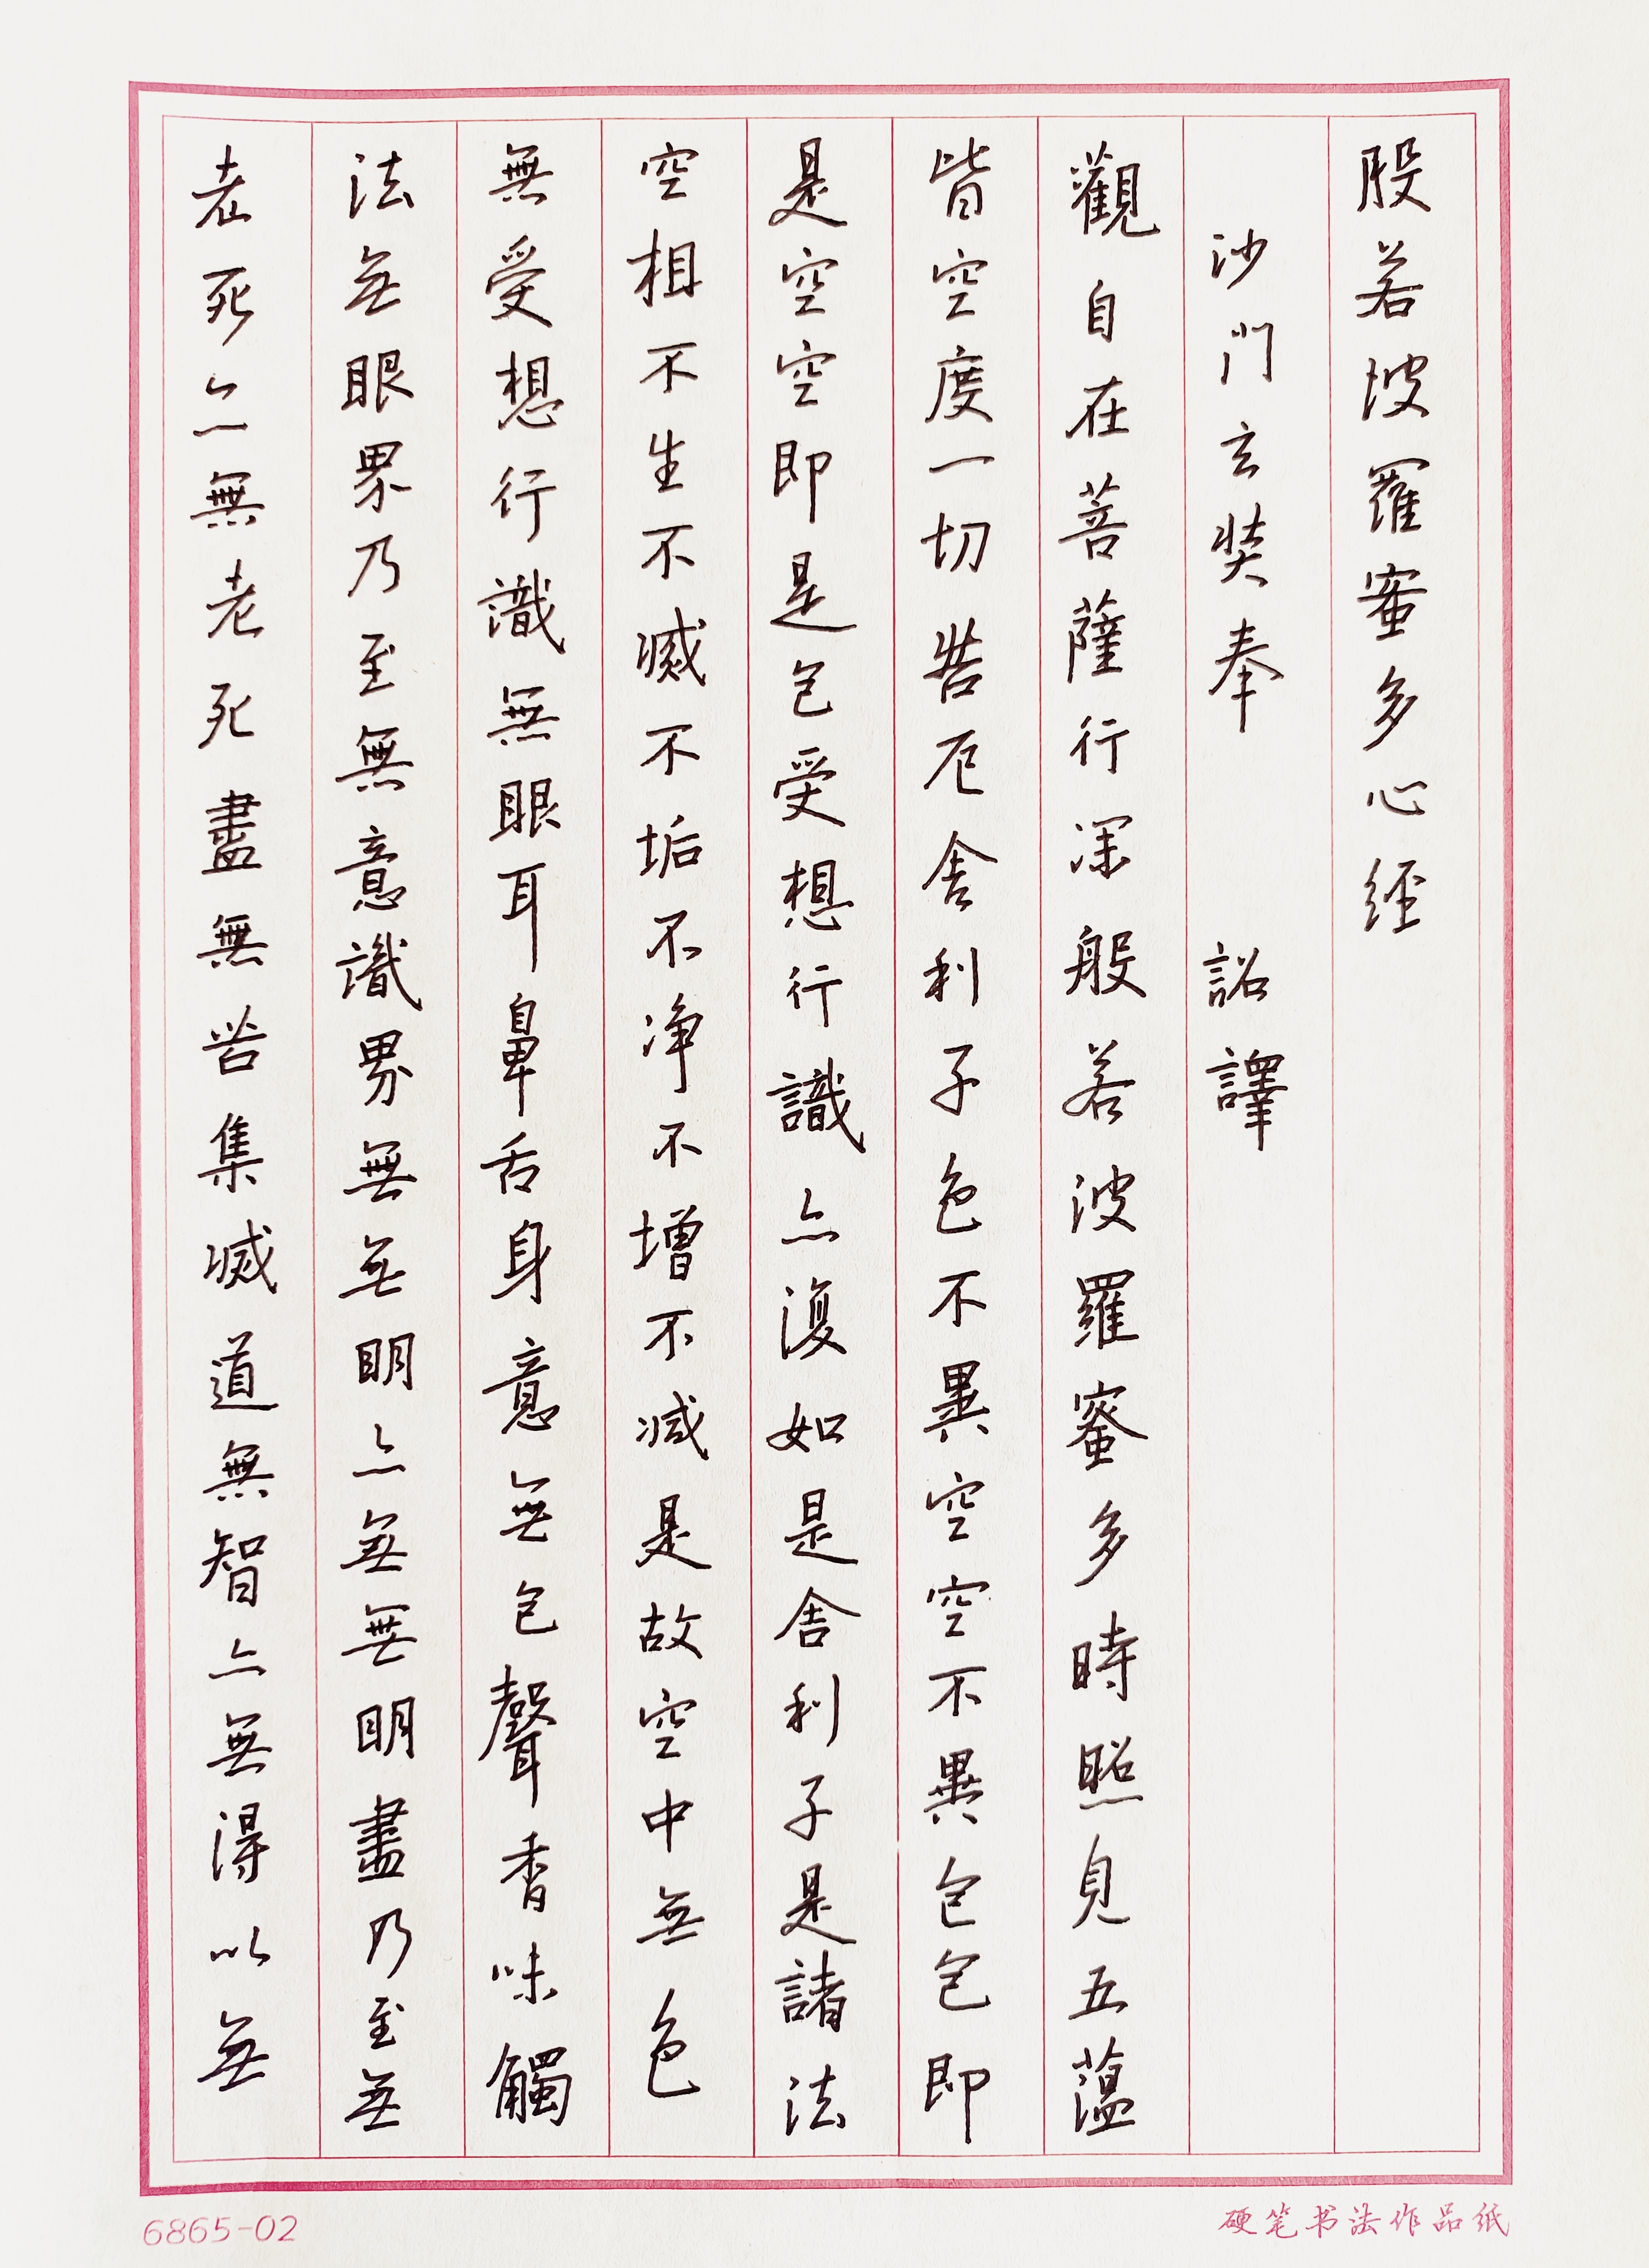 般若波羅蜜多心經
沙門玄奘奉 詔譯
觀自在菩薩行深般若波羅蜜多時照見五蘊
皆空度一切苦厄舍利子色不異空空不異色色即
是空空即是色受想行識亦復如是舍利子是諸法
空相不生不滅不垢不净不增不減是故空中無色
無受想行識無眼耳鼻舌身意無色聲香味觸
法無眼界乃至無意識界無無明亦無無明盡乃至無
老死亦無老死盡無苦集滅道無智亦無得以無
6865-02
硬笔书法作品纸